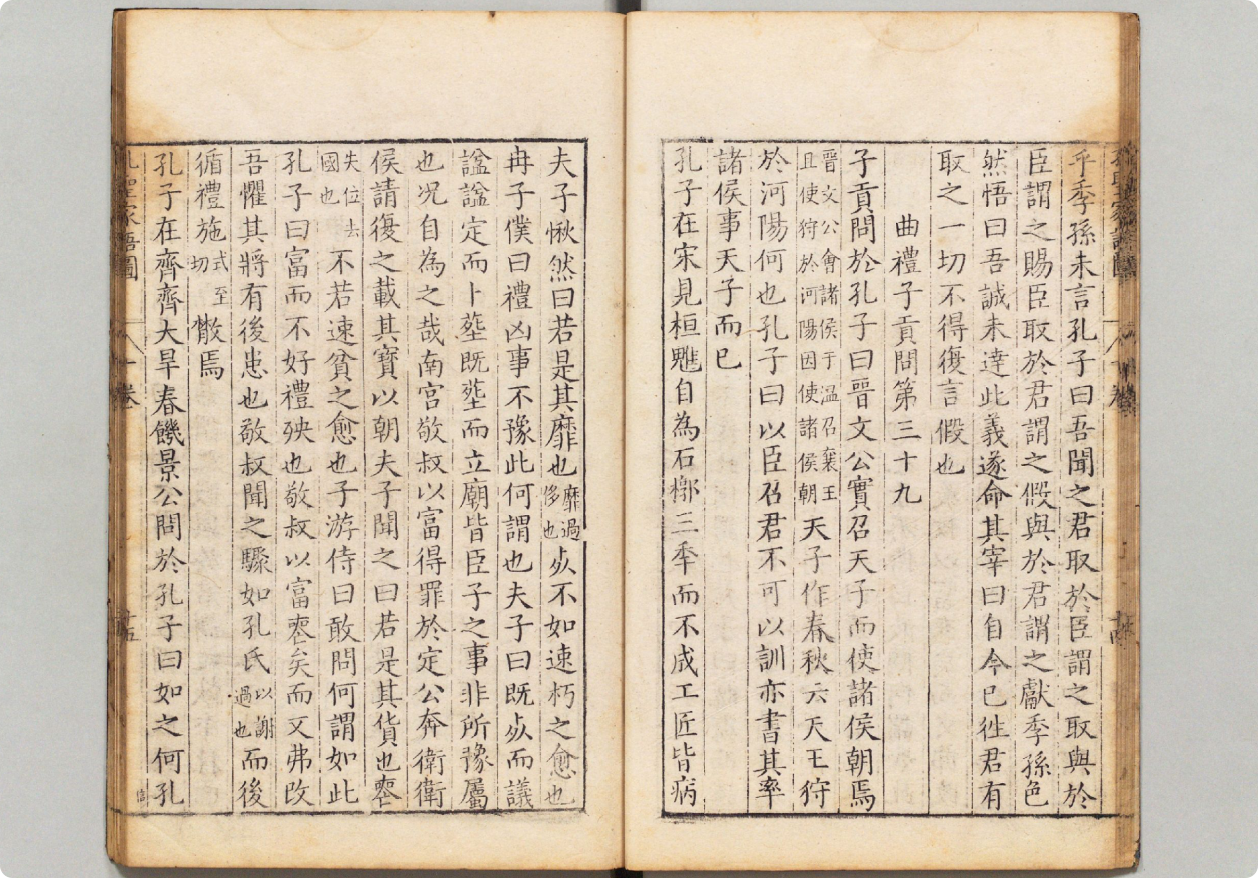 乎季孫未言孔子曰吾聞之君取於臣謂之取與於
臣謂之賜臣取於君謂之假與於君謂之獻季孫色
然悟曰吾誠未達此義遂命其宰曰自今已徃君有
取之一切不得復言假也
曲禮子貢問第三十九
子貢問於孔子曰晉文公實召天子而使諸侯朝焉
晉文公會諸侯于溫召襄王
且使狩於河陽因使諸侯朝
天子作春秋云天王狩
於河陽何也孔子曰以臣召君不可以訓亦書其率
諸侯事天子而已
孔子在宋見桓魋自為石槨三秊而不成工匠皆病
夫子愀然曰若是其靡也
靡過
侈也
死不如速朽之愈也
冉子僕曰禮凶事不豫此何謂也夫子曰既死而議
諡諡定而卜塟既塟而立廟皆臣子之事非所豫屬
也况自為之哉南宮敬叔以富得罪於定公奔衛衛
侯請復之載其寶以朝夫子聞之曰若是其貨也䘮
失位去
國也
不若速貧之愈也子游侍曰敢問何謂如此
孔子曰富而不好禮殃也敬叔以富䘮矣而又弗改
吾懼其將有後患也敬叔聞之驟如孔氏
以謝
過也
而後
循禮施
式至
切
散焉
孔子在齊齊大旱春饑景公問於孔子曰如之何孔